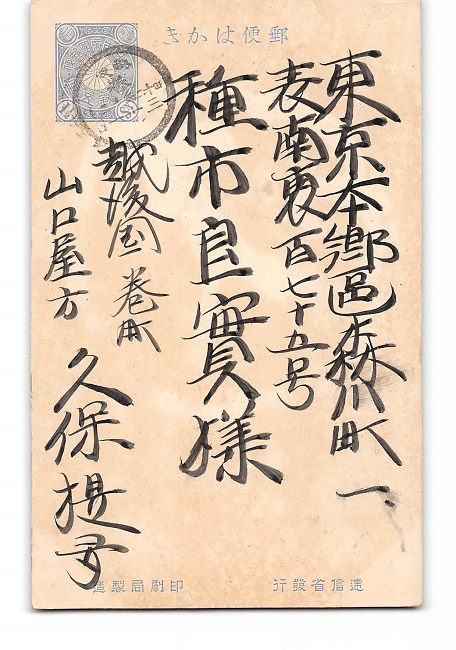 郵便はかき
東京本郷區森川町一
表南裏百七十五号
種市良實様
越後国巻町
山口屋方
久保提
逓信省發行
印刷局製造